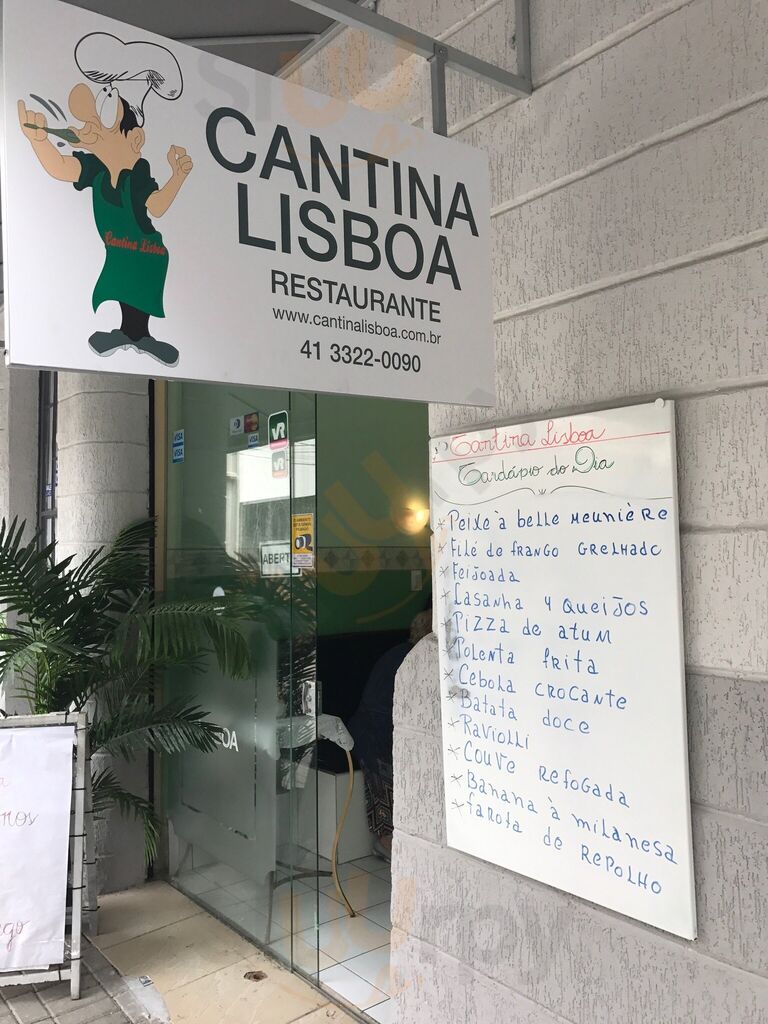 CANTINA
LISBOA
RESTAURANTE
www.cantinalisboa.com.br
41 3322-0090
Cantina Lisboa
VISA
VISA
VR
VR
ABERT
OA
Cantina Lisboa
Cardápio do Dia
* Peixe à belle meunière
* Filé de frango grelhado
* Feijoada
* Lasanha 4 queijos
* Pizza de atum
* Polenta frita
* Cebola crocante
* Batata doce
* Raviolli
* Couve refogada
* Banana à milanesa
* farofa de repolho